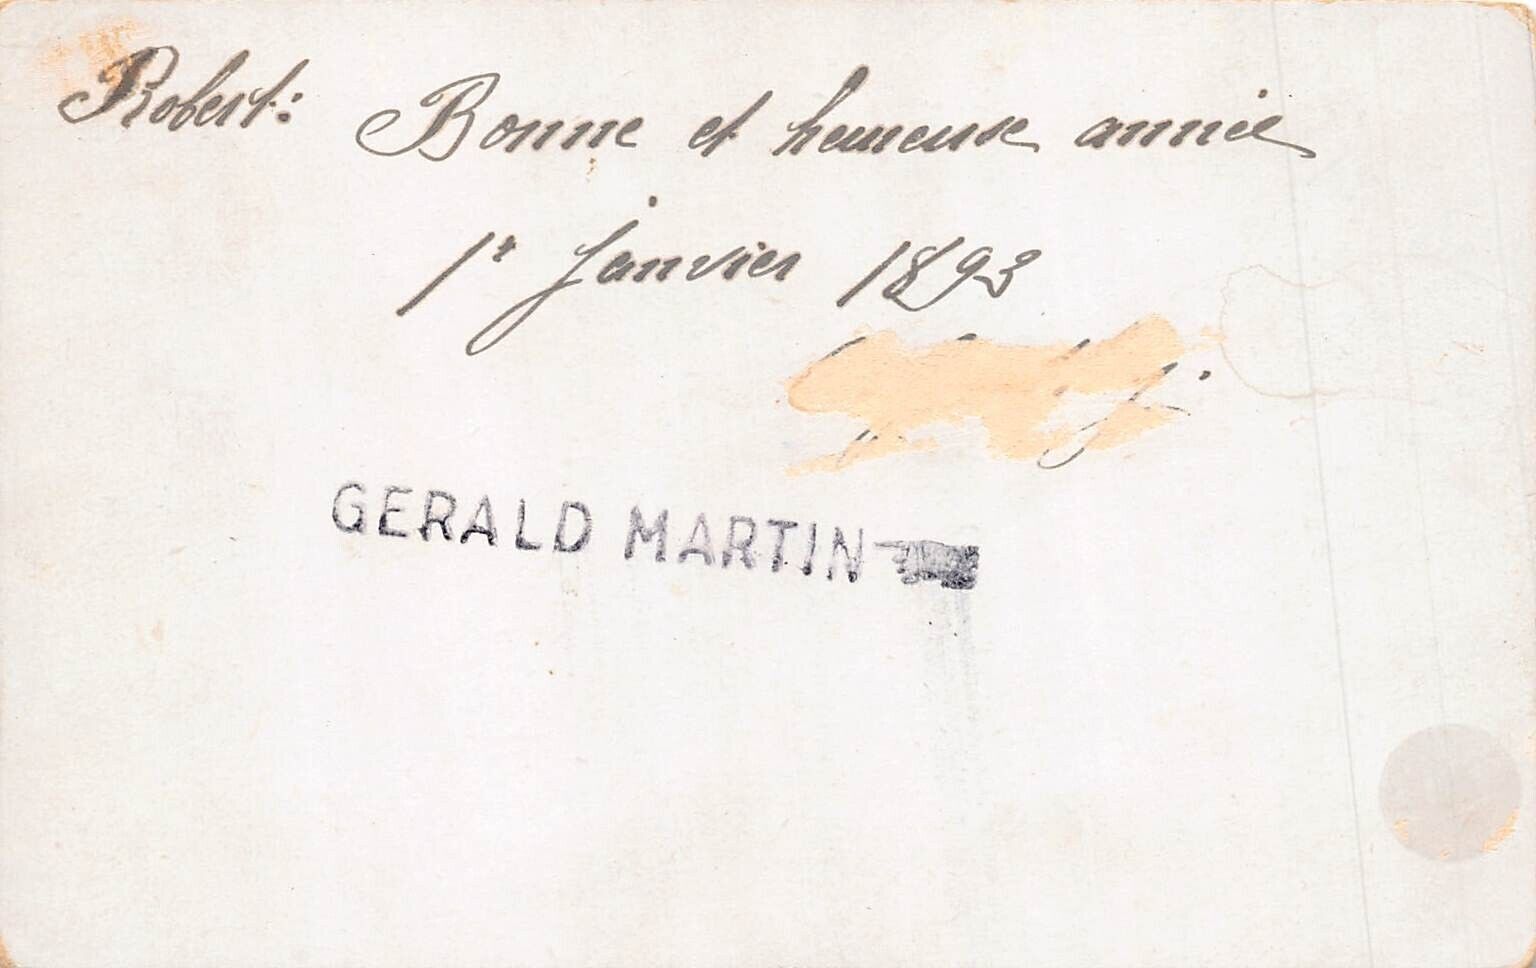 Robert: Bonne et heureuse année
1r janvier 1893
GERALD MARTIN